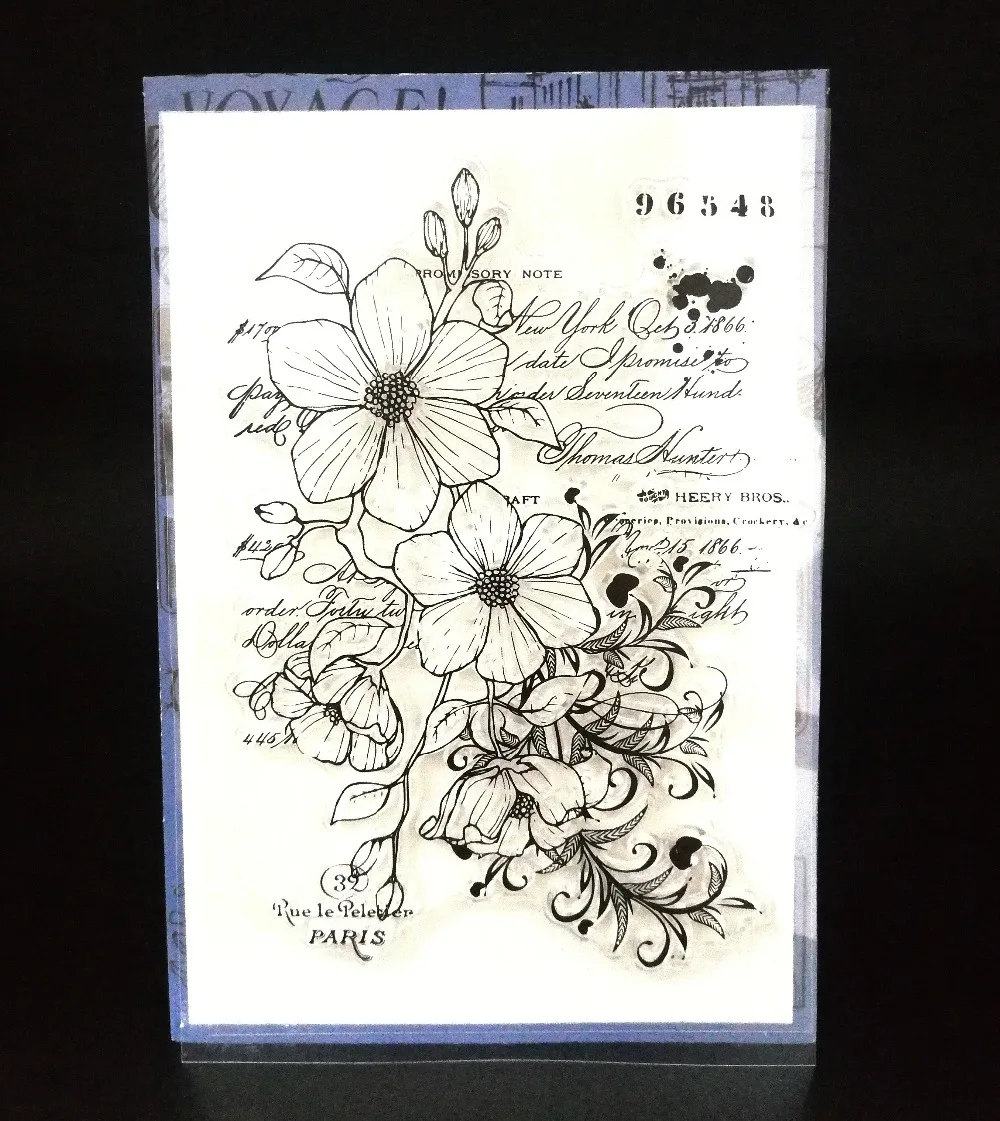 VOYAGE!
96548
PROMISSORY NOTE
$170 New York Oct 3. 1866.
/date I promise to
Pay order Seventeen Hund.
red
Thomas Hunter
HEERY BROS.,
Provisions, Crockery, &c
$42 15 1866.
or
order Forty in ight
Dolla
445
32
Rue le Peletier
PARIS